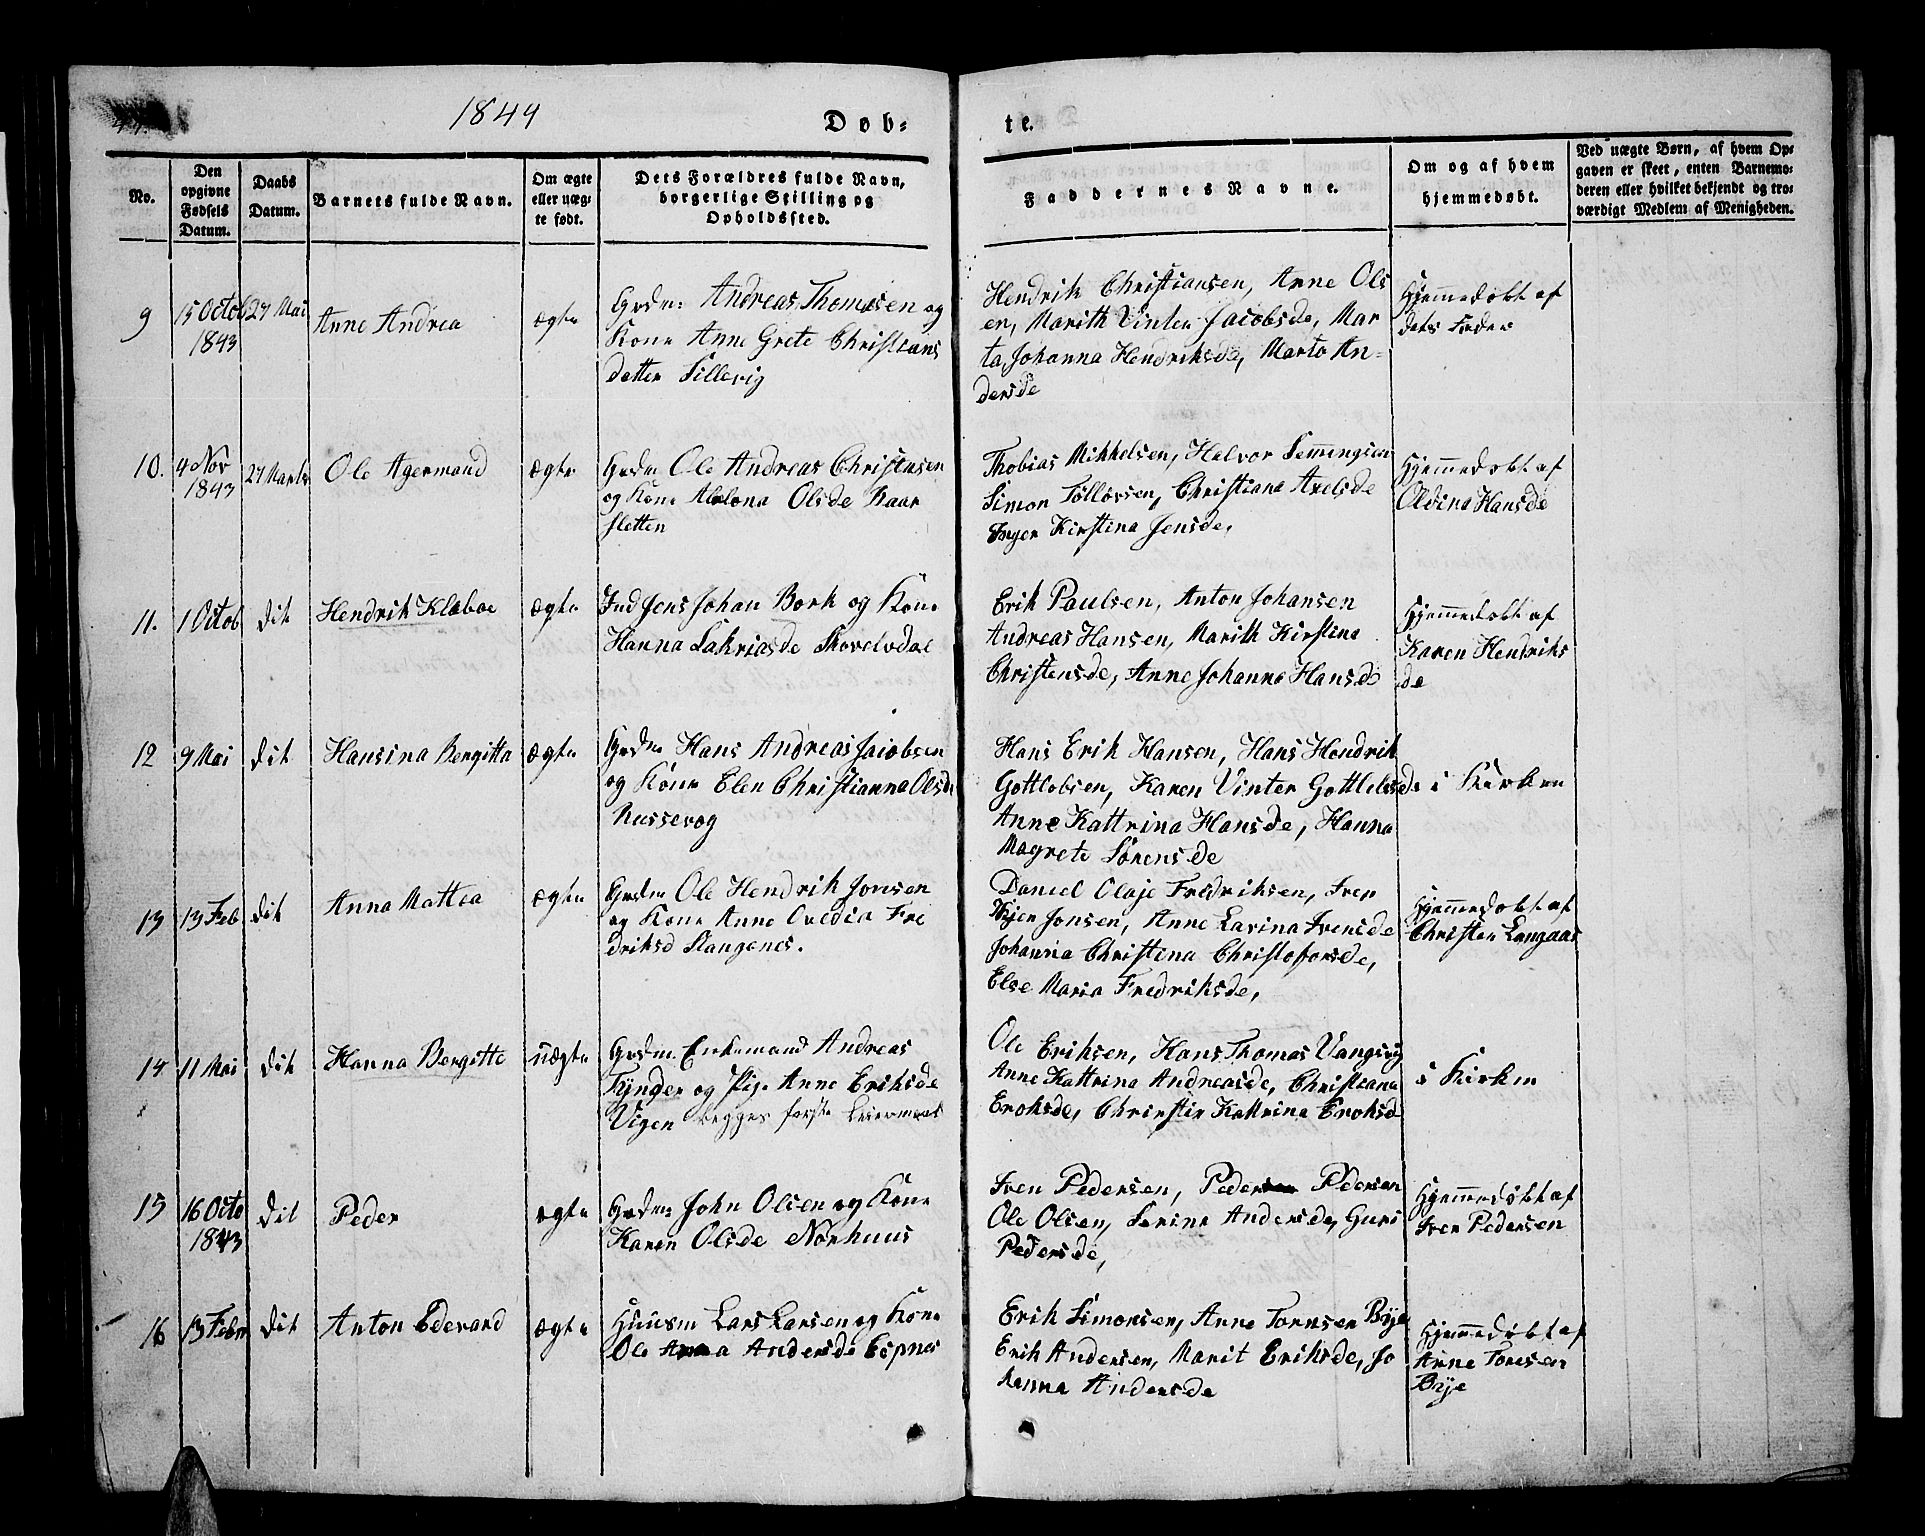 1844
Døb-
te.
No.
Den
opgivne
Fødsels
Datum.
Daabs
Datum.
Barnets fulde Navn.
Om ægte
eller uæg-
te født.
Dets Forældres fulde Navn,
borgerlige Stilling og
Opholdssted.
Faddernes Navne.
Om og af hvem
hjemmedøbt.
Ved uægte Børn, af hvem Op-
gaven er skeet, enten Barnemo-
deren eller hvilket bekjendt og tro-
værdigt Medlem af Menigheden.
9
15 Octob
1843
27 Mai
Anne Andrea
ægte
Grdm: Andreas Thomesen og
Kone Anne Grete Christians
datter Sillevig
Hendrik Christiansen, Anne Ols
en, Marith Vinter Jacobsde, Mar
ta, Johanna Hendriksde, Marta An-
dersde
Hjemmedøbt af
dets Fader
10.
4 Nov
1843
27 Marts
Ole Agermand
ægte
Grdm Ole Andreas Christensen
og Kone Olsde Kaar
sletten
Thobias Mikkelsen, Helvor Semmingsen
Simon Tølløvsen, Christiana Axelsde
Kirstina Jensde,
Hjemmedøbt af
Oldina Hansde
11.
1 Octob
dit
Hendrik Klæboe
ægte
Ind Jens Johan Bork og Kone
Hanna Sakriasde Skovelvdal
Erik Paulsen, Anton Johansen
Andreas Hansen, Marith Kirstina
Christensde, Anne Johanna Hansde
Hjemmedøbt af
Karen Hendriks
de
12
9 Mai
dit
Hansina Bergitta
ægte
Grdm Hans Andreas Jacobsen
og Kone Elen Christianna Olsde
Russevog
Hans Erik Hansen, Hans Hendrik
Gottlobsen, Karen Vinter Gottlebsde
Anne Kattrina Hansde, Hanna
Magrete Sørensde
i Kirken
13
13 Feb
dit
Anna Mattea
ægte
Grdm Ole Hendrik Jonsen
og Kone Anne Ovedia Fre
driksd Stangenes.
Daniel Olaje Fredriksen, Iver
Jonsen, Anne Larina Ivensde
Johanna Christina Christoforsde,
Else Maria Fredriksde,
Hjemmedøbt af
Christen Langaas
14
11 Mai
dit
Hanna Bergitte
uægte
Grdm. Enkemand Andreas
Tynger og Pige Anne Eriksde
Vigen begges første Leiermaal
Ole Eriksen, Hans Thomas Vangsvig
Anne Kattrina Andreasde, Christiana
Eroksde, Christin Kattrina Eroksd
i Kirken
15
16 Octo
1843
dit
Peder
ægte
Grdm: John Olsen og Kone
Karen Olsde Norhuus
Iver Pedersen, Peder Pedersen
Ole Olsen, Serine Andersde, Guri
Pedersde,
Hjemmedøbt af
Iver Pedersen
16
13 Febr
dit
Anton Edevard
ægte
Huusm Lars Larsen og Kone
Ole Anna Andersde Espnes
Erik Simonsen, Anne Tornsen Bye
Erik Andersen, Marit Eriksde, Jo
hanna Andersde
Hjemmedøbt af
Anne Toresen
Bye